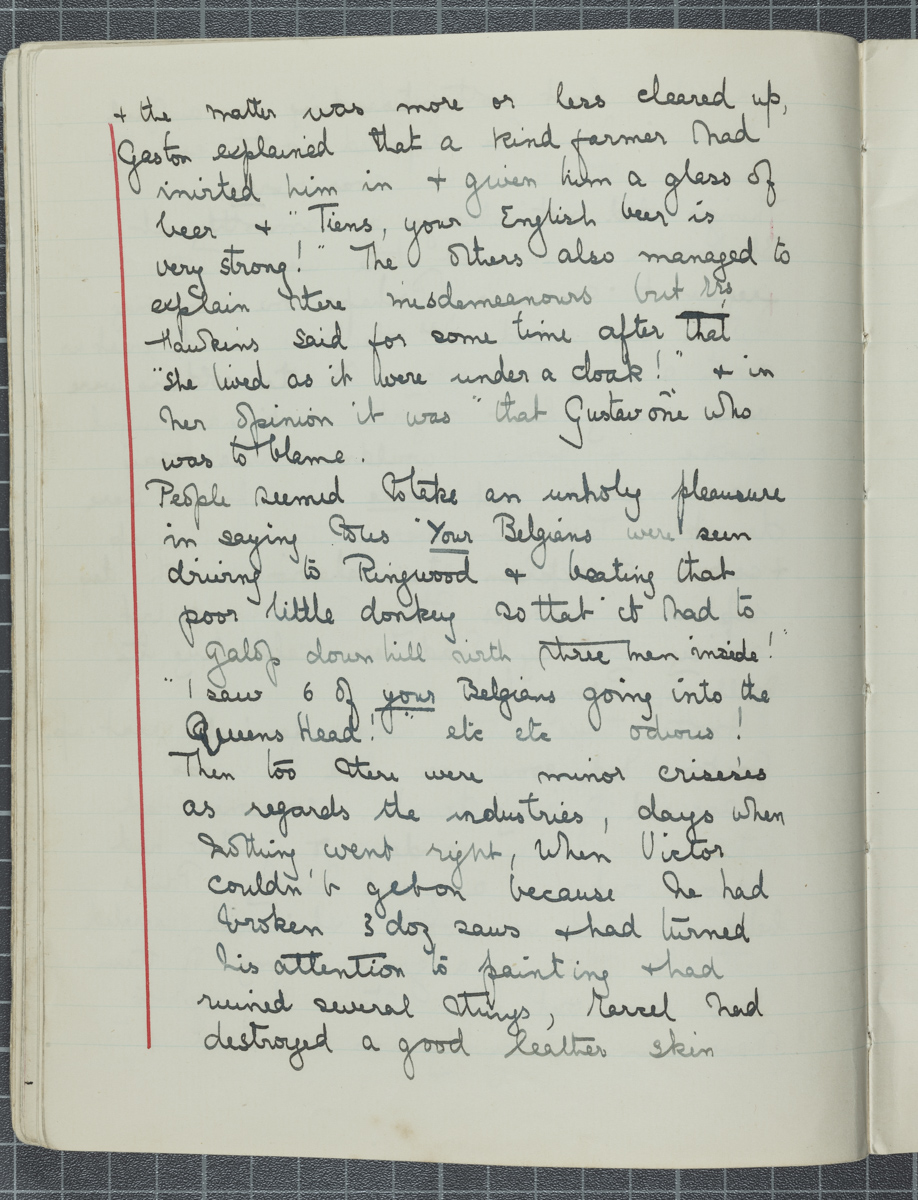 + the matter was more or less cleared up,
Gaston explained that a kind farmer had
invited him in + given him a glass of
beer + " Tiens, your English beer is
very strong!" The others also managed to
explain there misdemeanours but Mrs
Hawkins said for some time after that
"she lived as it were under a cloak!" + in
her opinion it was "that Gustav one" who
was to blame.
People seemed to take an unholy pleausure
in saying to us "Your Belgians were seen
driving to Ringwood + beating that
poor little donkey so that it had to
galop down hill with three men inside!"
"I saw 6 of your Belgians going into the
Queens Head!" etc etc odious!
Then too there were minor criseses
as regards the industries, days when
nothing went right, when Victor
couldn't get on because he had
broken 3 doz saws + had turned
his attention to painting + had
ruined several things, Marcel had
destroyed a good leather skin